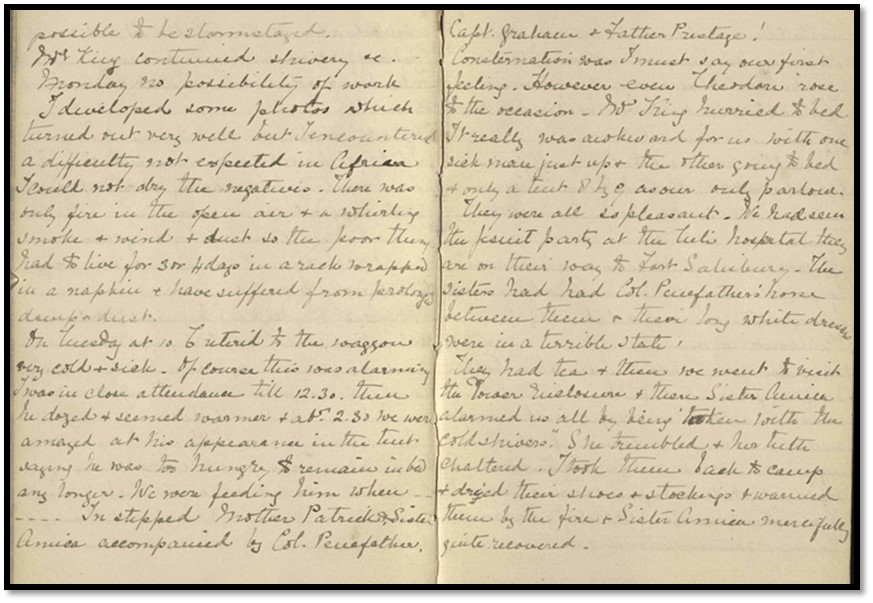 possible to be stormstayed.
Mr King continued shivery &c.
Monday no possibility of work
I developed some photos which
turned out very well but I encountered
a difficulty not expected in Africa
I could not dry the negatives. There was
only fire in the open air & a whirling
smoke & wind & dust so the poor things
had to live for 3 or 4 days in a rack wrapped
in a napkin & have suffered from prolonged
damp & dust.
On Tuesday at 10 retired to the waggon
very cold & sick. Of course this was alarming
I was in close attendance till 12.30. then
he dozed & seemed warmer & abt 2.30 we were
amazed at his appearance in the tent
saying he was too hungry to remain in bed
any longer. We were feeding him when --
---- In stepped Mother Patrick & Sister
Amica accompanied by Col. Penefather,
Capt. Graham & Father Prestage!
Consternation was I must say our first
feeling. However even Theodore rose
to the occasion - Mr King hurried to bed
It really was awkward for us with one
sick man just up & the other going to bed
& only a tent 8 by 9 as our only parlour.
They were all so pleasant. We had seen
the party at the Tuli hospital they
are on their way to Fort Salisbury - The
Sisters had had Col. Penefather's horse
between them & their long white dresses
were in a terrible state!
They had tea & then we went to visit
the Tower Enclosure & there Sister Amica
alarmed us all by being "taken with the
cold shivers". She trembled & her teeth
chattered. I took them back to camp
& dryed their shoes & stockings & warmed
them by the fire & Sister Amica mercifully
quite recovered.